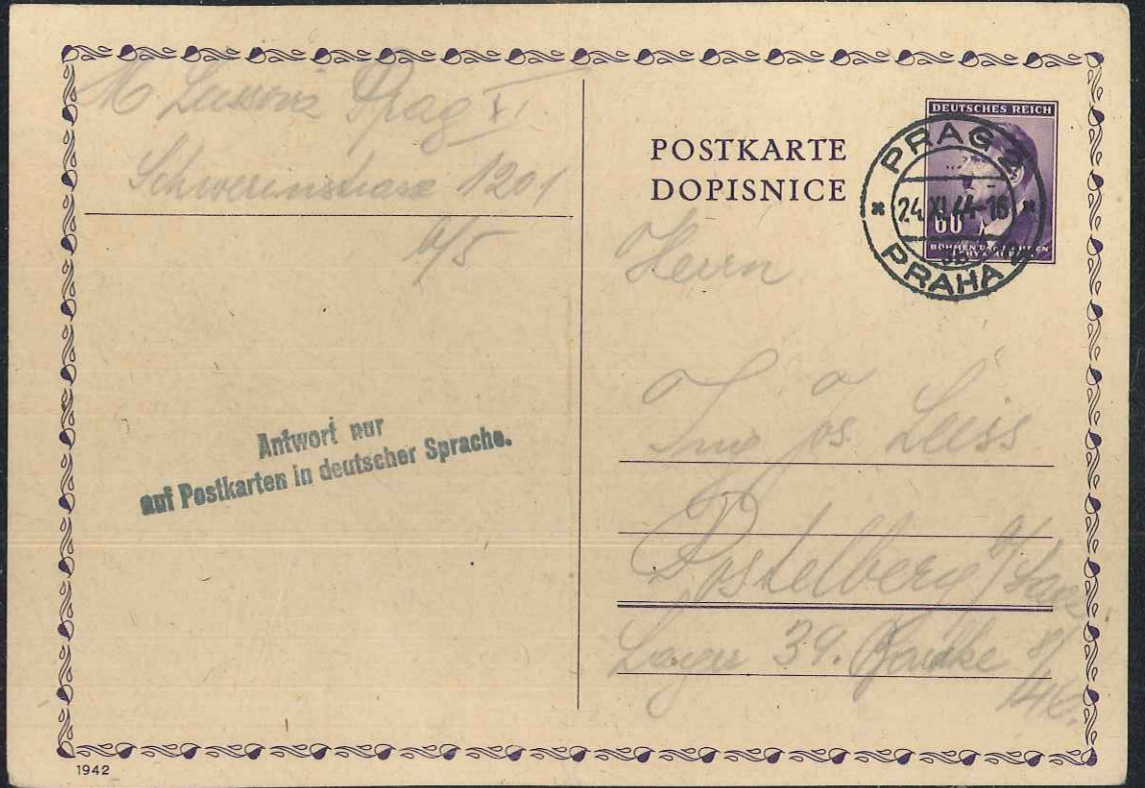 M. Leissova Prag XI.
Schwerinstrasse 1201
6/5
Antwort nur
auf Postkarten in deutscher Sprache.
POSTKARTE
DOPISNICE
DEUTSCHES REICH
60
PRAG 2
24. XI. 44-16
PRAHA
Herrn
Ing Jos. Leiss
Postelberg a/Saaz
Lager 34. Baracke 8/
1942